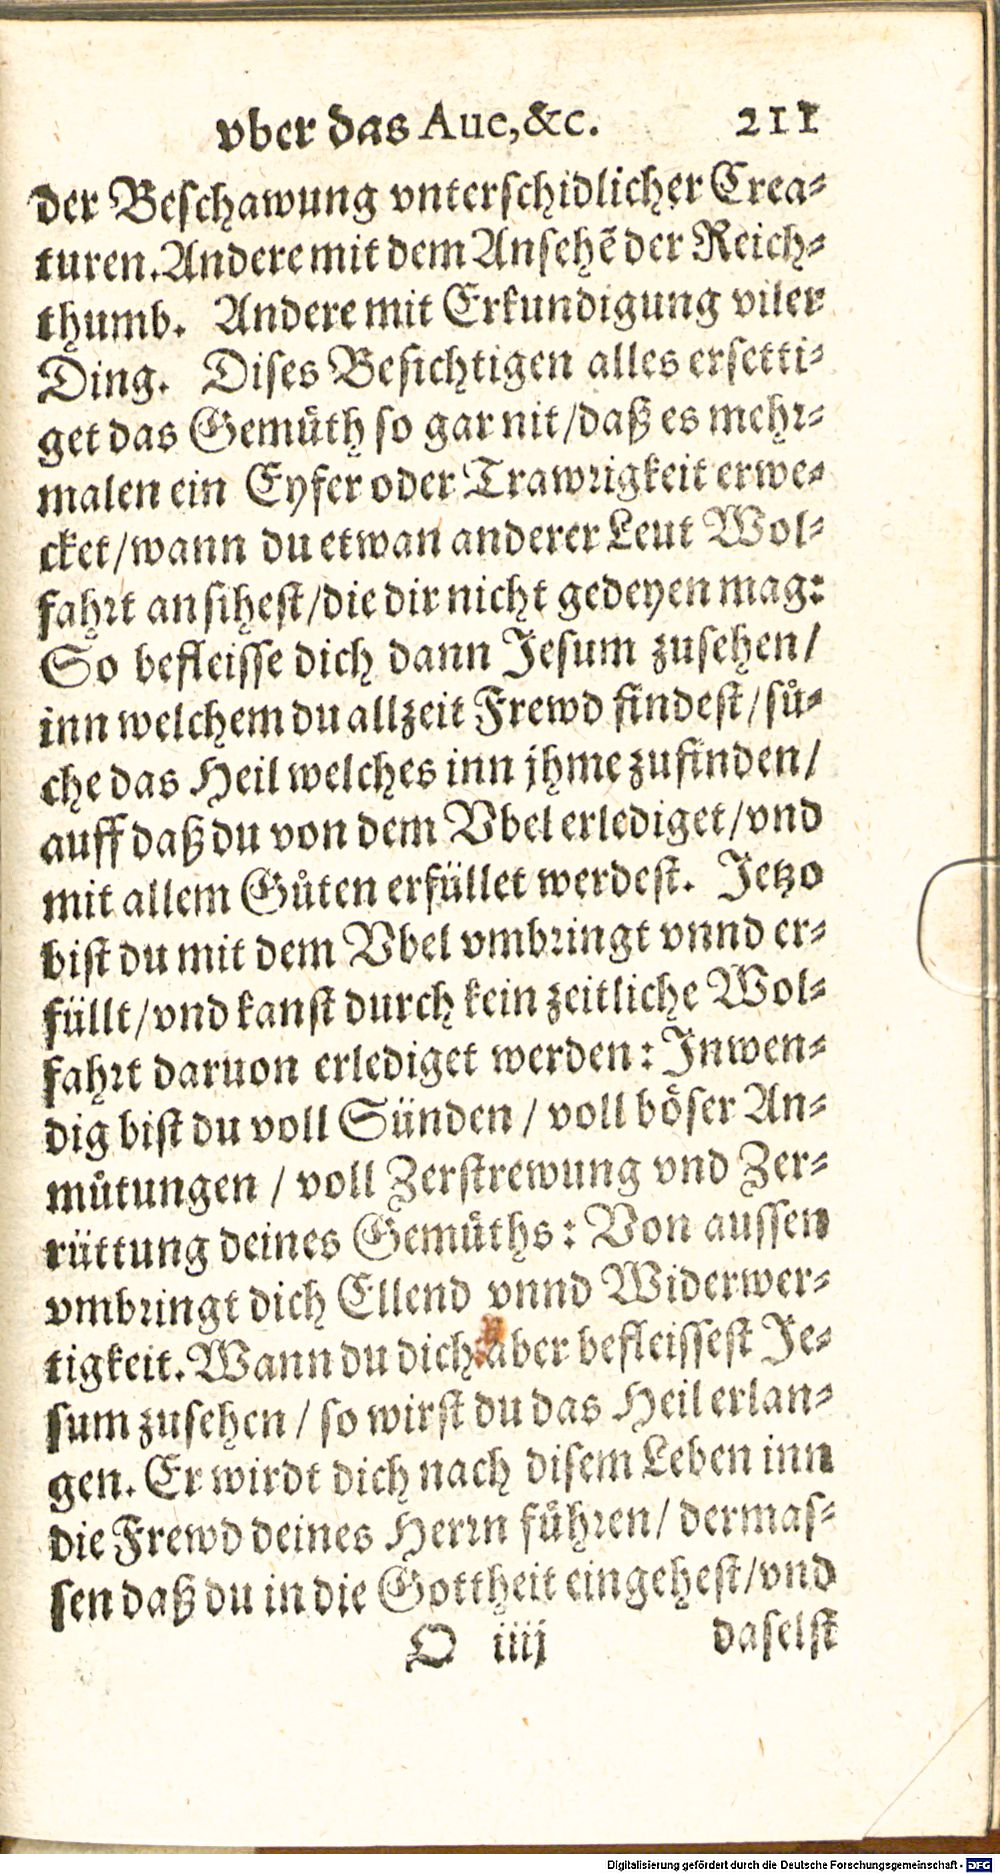 vber das Aue, &c. 211
der Beschawung vnterschidlicher Crea⸗
turen. Andere mit dem Ansehẽ der Reich⸗
thumb. Andere mit Erkundigung viler
Ding. Dises Besichtigen alles ersetti⸗
get das Gemuͤth so gar nit/ daß es mehr⸗
malen ein Eyfer oder Trawrigkeit erwe⸗
cket/ wann du etwan anderer Leut Wol⸗
fahrt ansihest/ die dir nicht gedeyen mag:
So befleisse dich dann Jesum zusehen/
inn welchem du allzeit Frewd findest/ suͤ⸗
che das Heil welches inn jhme zufinden/
auff daß du von dem Vbel erlediget/ vnd
mit allem Guͤten erfüllet werdest. Jetzo
bist du mit dem Vbel vmbringt vnnd er⸗
füllt/ vnd kanst durch kein zeitliche Wol⸗
fahrt daruon erlediget werden: Inwen⸗
dig bist du voll Sünden / voll boͤser An⸗
muͤtungen / voll Zerstrewung vnd Zer⸗
rüttung deines Gemuͤths: Von aussen
vmbringt dich Ellend vnnd Widerwer⸗
tigkeit. Wann du dich aber befleissest Je⸗
sum zusehen / so wirst du das Heil erlan⸗
gen. Er wirdt dich nach disem Leben inn
die Frewd deines Herrn fuͤhren/ dermas⸗
sen daß du in die Gottheit eingehest/ vnd
O iiij daselst
Digitalisierung gefördert durch die Deutsche Forschungsgemeinschaft - DFG